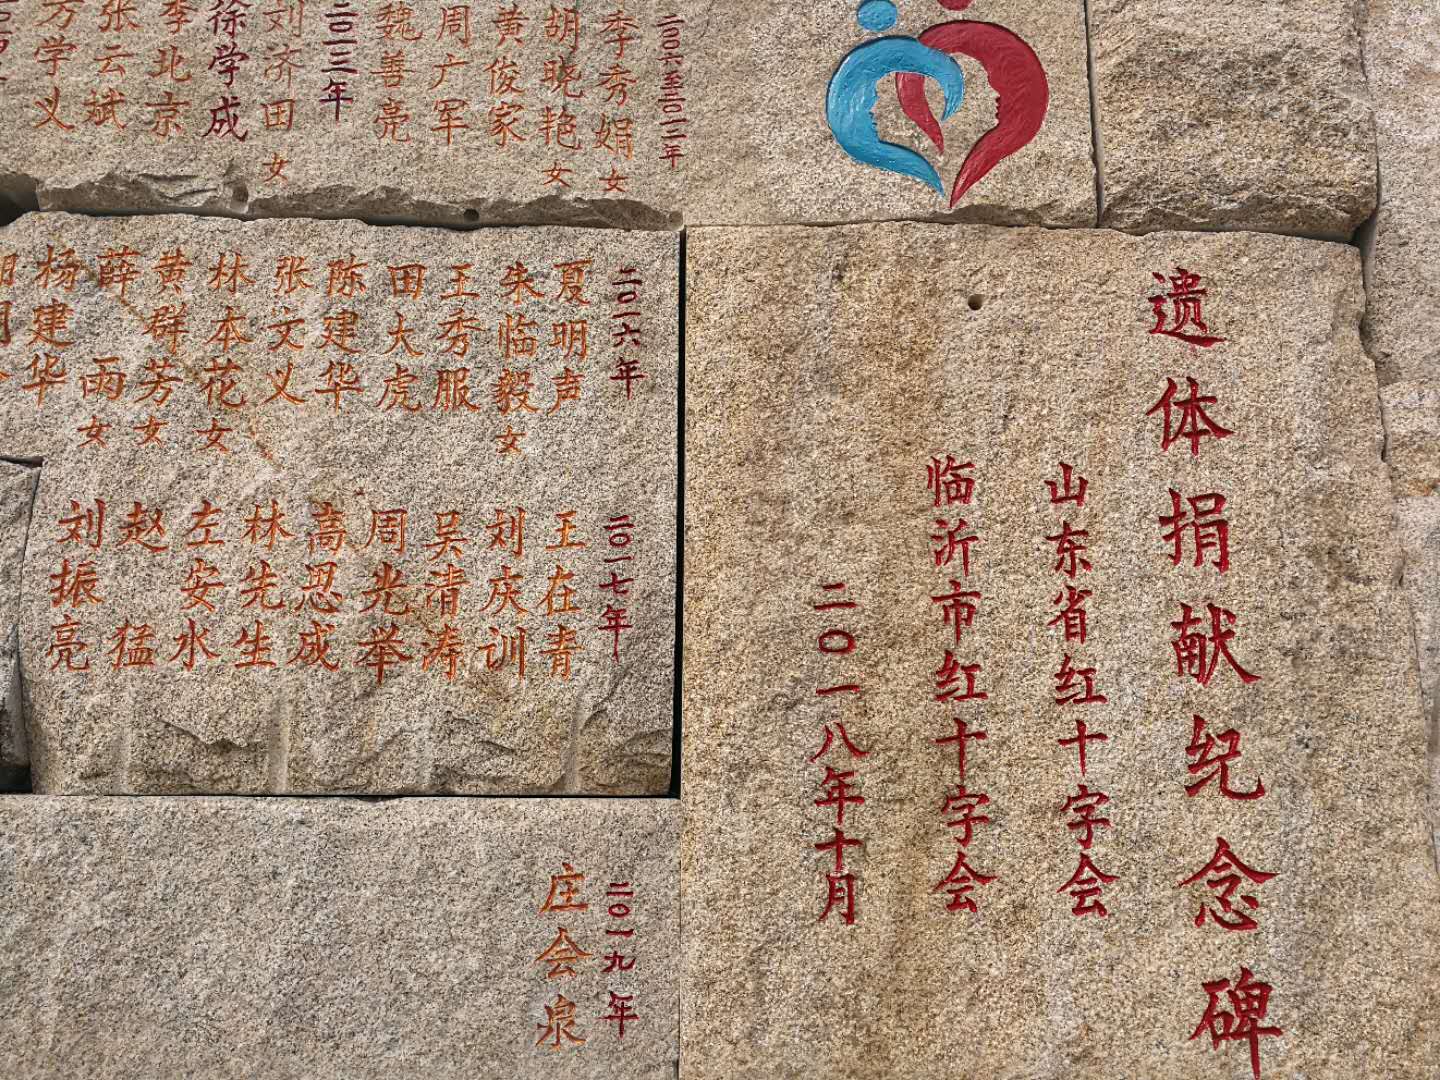 遗体捐献纪念碑
山东省红十字会
临沂市红十字会
二〇一八年十月
二〇〇六至二〇一一年
李秀娟 女
胡晓艳 女
黄俊家
周广军
魏善亮
二〇一三年
刘济田 女
徐学成
李北京
张云斌
方学义
二〇一六年
夏明声
朱临毅 女
王秀服
田大虎
陈建华
张文义
林本花 女
黄群芳 女
薛雨 女
杨建华
二〇一七年
王在青
刘庆训
吴清涛
周光举
高思成
林先生
左安水
赵猛
刘振亮
二〇一九年
庄会泉